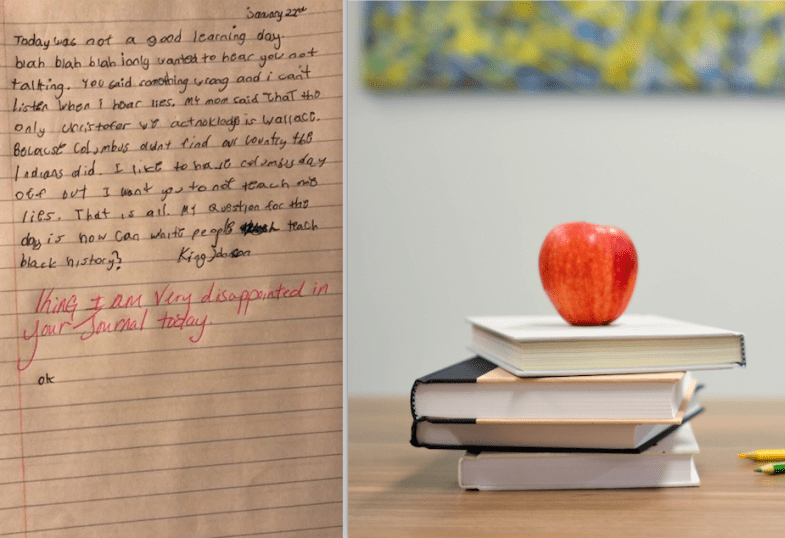 January 22nd
Today was not a good learning day.
blah blah blah i only wanted to hear you not
talking. You said something wrong and i can't
listen when I hear lies. My mom said that the
only christofer we acknoklodge is wallace.
Because Columbus didnt find our country the
Indians did. I like to have columbus day
off but I want you to not teach me
lies. That is all. My question for the
day is how can white people teach
black history? King Johnson
King I am very disappointed in
your Journal today.
ok